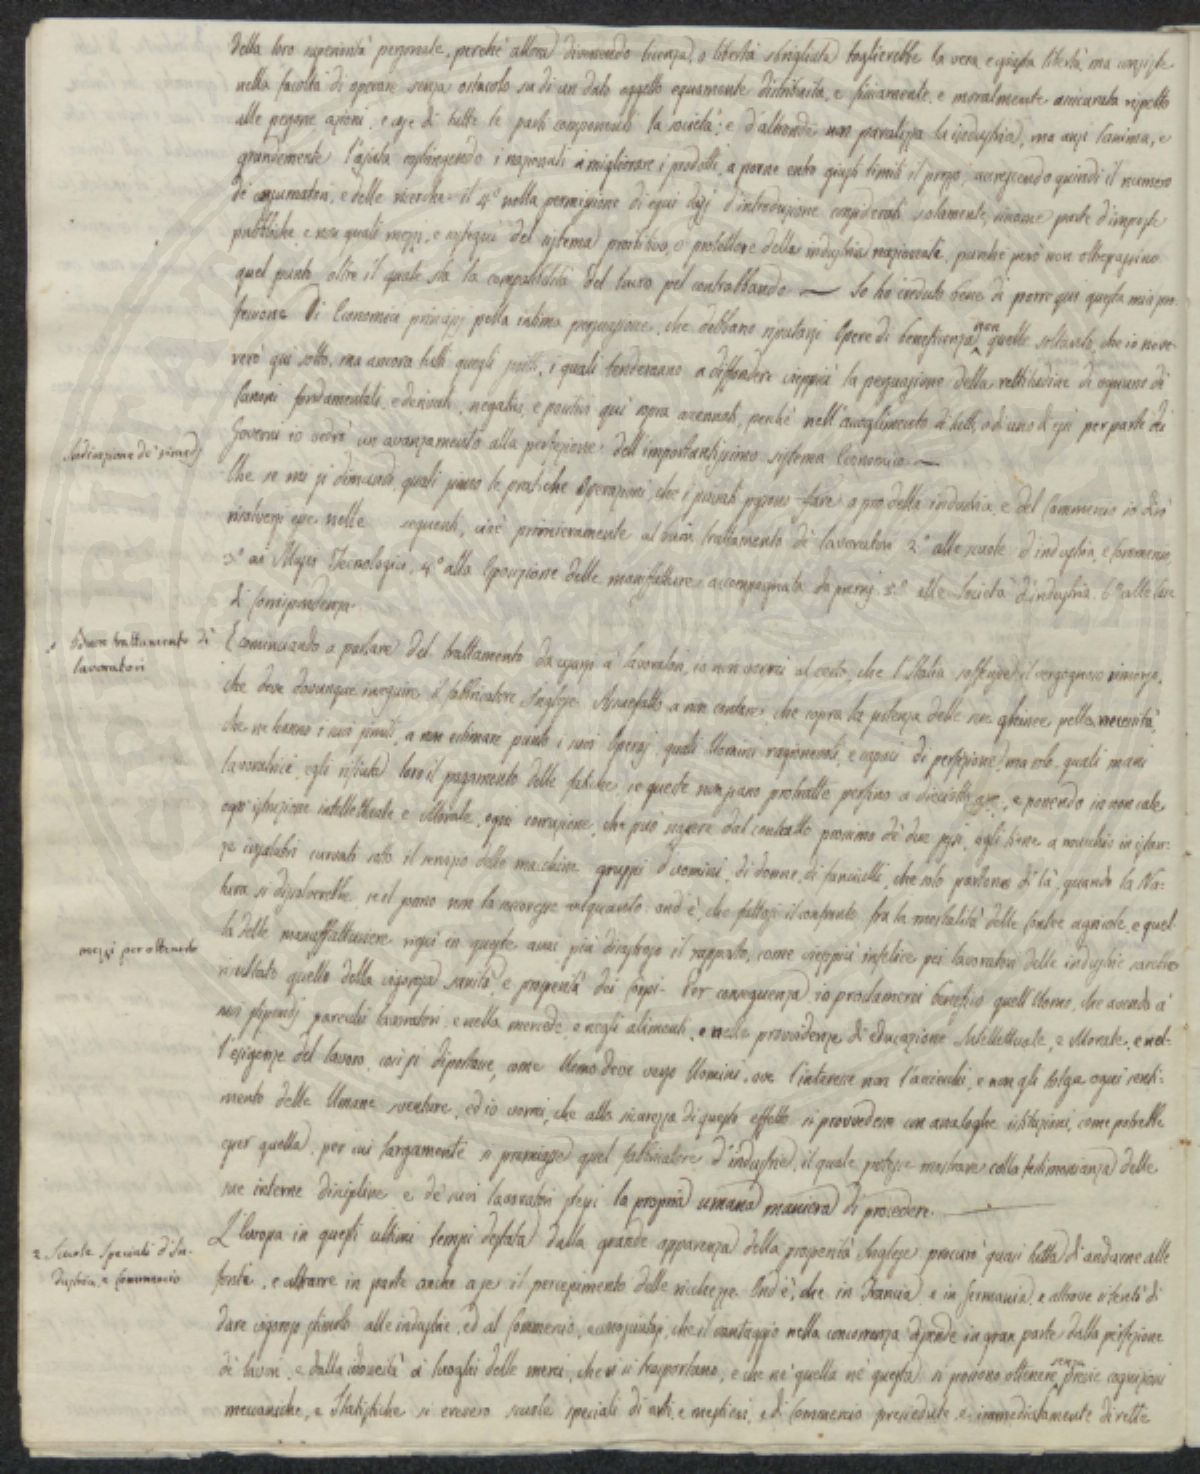 della loro superiorità personale, perché allora divenendo licenza, o libertà sbrigliata toglierebbe la vera e giusta libertà, ma consiste
nella facoltà di operare senza ostacolo su di un dato oggetto equamente distribuita, e fisicamente, e moralmente assicurata rispetto
alle persone azioni, e cose di tutte le parti componenti la società; e d'altronde non paralizza la industria, ma anzi l'anima, e
grandemente l'ajuta costringendo i nazionali a migliorare i prodotti, a porne entro giusti limiti il prezzo, accrescendo quindi il numero
di consumatori, e delle ricerche. il 4° nella permissione di equi dazj d'introduzione considerati solamente, siccome parte d'imposte
pubbliche e non quali mezzi, e ostegni del sistema proibitivo, e protettore della industria nazionale, purché però non oltrepassino
quel punto oltre il quale sta la compatibilità del lucro pel contrabbando — Io ho creduto bene di porre qui questa mia pro
fessione di Economici principj pella intima persuasione, che debbano reputarsi Opere di beneficenza non quelle soltanto, che io nove-
verò qui sotto, ma ancora tutti quegli scritti, i quali tenderanno a diffondere vieppiù la persuasione della rettitudine di ognuno di
Canoni fondamentali, e derivati, negativi, e positivi qui sopra accennati, perché nell'accoglimento di tutti, o di uno di essi per parte dei
Governi io vedrò un avanzamento alla perfezione dell'importantissimo sistema Economico —
Indicazione de' rimedj
Che se mi si dimanda quali siano le pratiche Operazioni, che i privati possono fare a pro della industria, e del Commercio io dirò
risolversi esse nelle seguenti, cioè primieramente al buon trattamento de' lavoratori 2° alle scuole d'industria, e Commercio,
3° ai Musei Tecnologici, 4° alla Esposizione delle manifatture accompagnata da premj 5° alle Società d'industria. 6° alle Case
di Corrispondenza.
1 Buon trattamento de'
lavoratori
E cominciando a parlare del trattamento da usarsi a' lavoratori, io non vorrei al certo, che l'Italia soffrisse il vergognoso rimorso,
che deve dovunque inseguire il fabbricatore Inglese. Assuefatto a non contare, che sopra la potenza delle sue ghinee pella necessità,
che ne hanno i suoi simili, a non estimare punto i suoi Operaj quali Uomini ragionevoli, e capaci di perfezione, ma solo quali mani
lavoratrici, egli rifiuta loro il pagamento delle fatiche, se queste non siano protratte persino a diciotto ore, e ponendo in non cale
ogni istruzione intellettuale e Morale, ogni corruzione, che può nascere dal contatto prossimo de' due sessi, egli tiene a mucchio in istan-
ze insalubri curvati sotto il servizio delle macchine gruppi d'uomini, di donne, di fanciulli, che solo partono di là, quando la Na-
tura si dissolverebbe, se il sonno non la ricoresse alquanto: ond'è, che fattosi il confronto fra la mortalità delle Contee agricole, e quel-
mezzi per ottenerlo
la delle manuffatturiere risultò in queste assai più disastroso il rapporto, come vieppiù infelice pei lavoratori delle industrie
risultato quello della vigoroza sanità e prosperità dei Corpi. Per conseguenza io proclamerei benefico quell'Uomo, che avendo a'
suoi stipendj parecchi lavoratori, e nella mercede, e negli alimenti, e nelle provvidenze di educazione Intellettuale, e Morale, e nel-
l'esigenze del lavoro, così si diportasse, come Uomo deve verso Uomini, ove l'interesse non l'acciechi, e non gli tolga ogni senti-
mento delle Umane sventure, ed io vorrei, che alla sicurezza di questo effetto si provvedesse con analoghe istituzioni, come potrebbe
esser quella, per cui largamente si premiasse quel fabbricatore d'industria, il quale potesse mostrare colla testimonianza delle
sue interne discipline e de' suoi lavoratori stessi la propria umana maniera di procedere.
2. Scuole Speciali d'In-
dustria, e Commercio
L'Europa in questi ultimi tempi destata dalla grande apparenza della prosperità Inglese procurò quasi tutta di andarne alle
fonti, e attrarre in parte anche a se il percepimento delle ricchezze. Ond'è, che in Francia, e in Germania, e altrove si tentò di
dare vigoroso stimolo alle industrie, ed al Commercio, e conosciutosi, che il vantaggio nella concorrenza dipende in gran parte dalla perfezione
di lavori, e dalla idoneità ai luoghi delle merci, che vi si trasportano, e che né quella né questa si possono ottenere senza previe cognizioni
meccaniche, e Statistiche si eressero scuole speciali di arti, e mestieri, e di Commercio presiedute, e immediatamente dirette